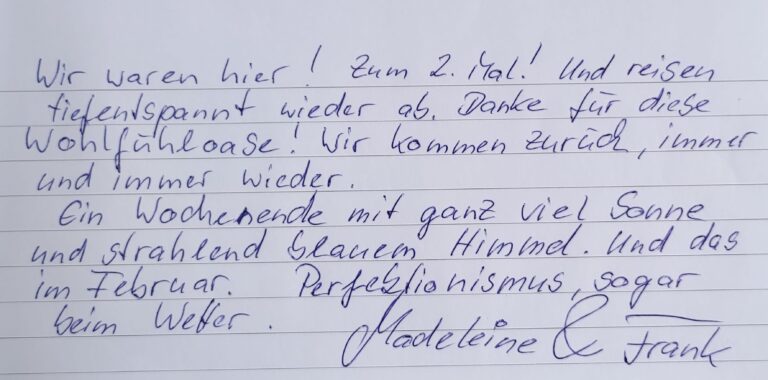 Wir waren hier! Zum 2. Mal! Und reisen
tiefentspannt wieder ab. Danke für diese
Wohlfühloase! Wir kommen zurück, immer
und immer wieder.
Ein Wochenende mit ganz viel Sonne
und strahlend blauem Himmel. Und das
im Februar. Perfektionismus, sogar
beim Wetter.
Madeleine & Frank